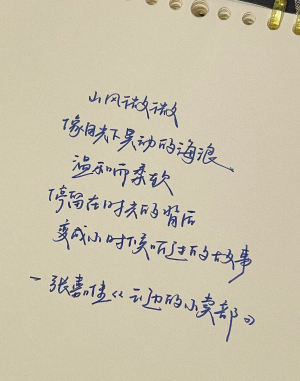 山风微微
像月光下晃动的海浪
温和而柔软
停留在时光的背后
变成小时候听过的故事
一张嘉佳《云边的小卖部》